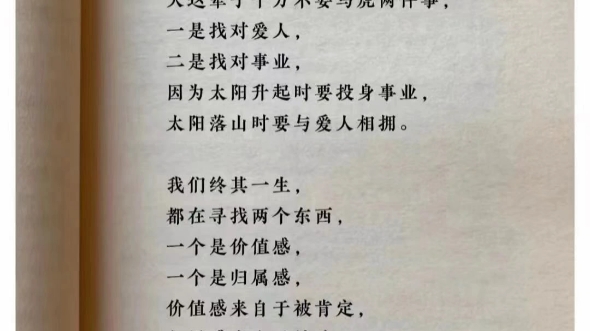 一是找对爱人，
二是找对事业，
因为太阳升起时要投身事业，
太阳落山时要与爱人相拥。
我们终其一生，
都在寻找两个东西，
一个是价值感，
一个是归属感，
价值感来自于被肯定，